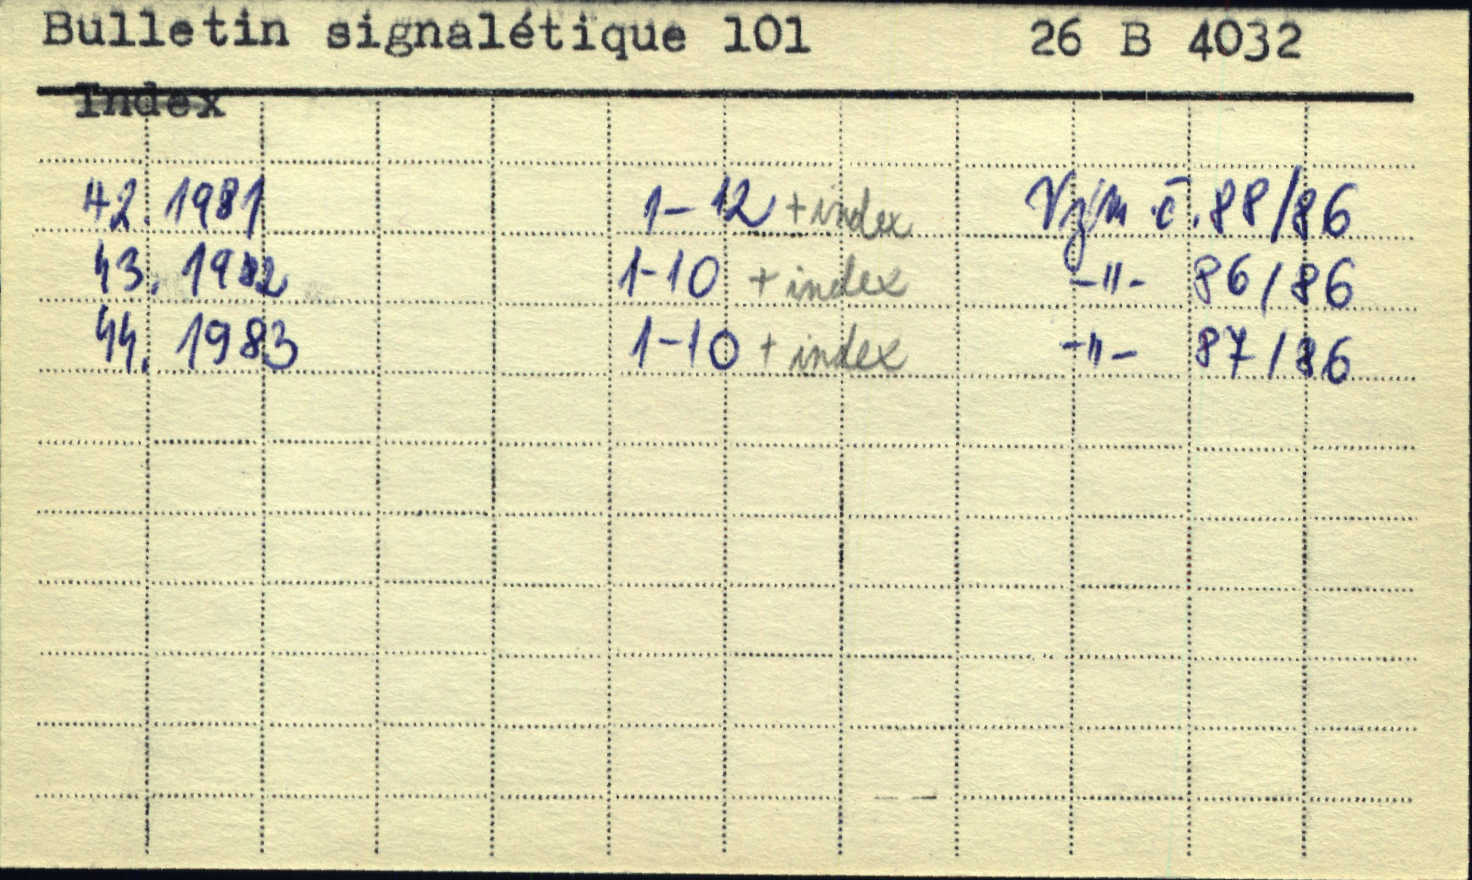 Bulletin signalétique 101 26 B 4032
Index
42. 1981 1-12 + index Vzm č. 88/86
43. 1982 1-10 + index -"- 86/86
44. 1983 1-10 + index -"- 87/86